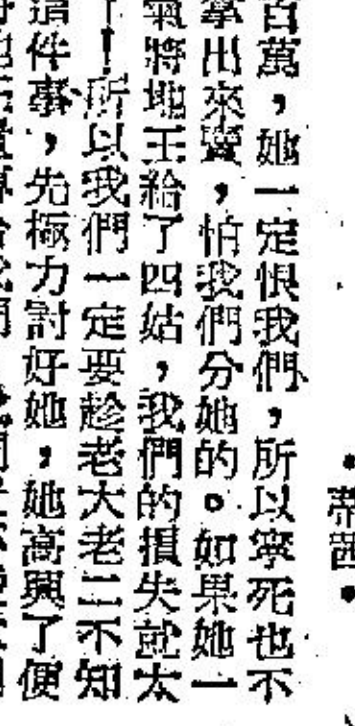 ・蒂茜・
百萬，她一定恨我們，所以寧死也不
拿出來賣，怕我們分她的。如果她一
氣將地王給了四姑，我們的損失就太
了！所以我們一定要趁老大老二不知
這件事，先極力討好她，她高興了便